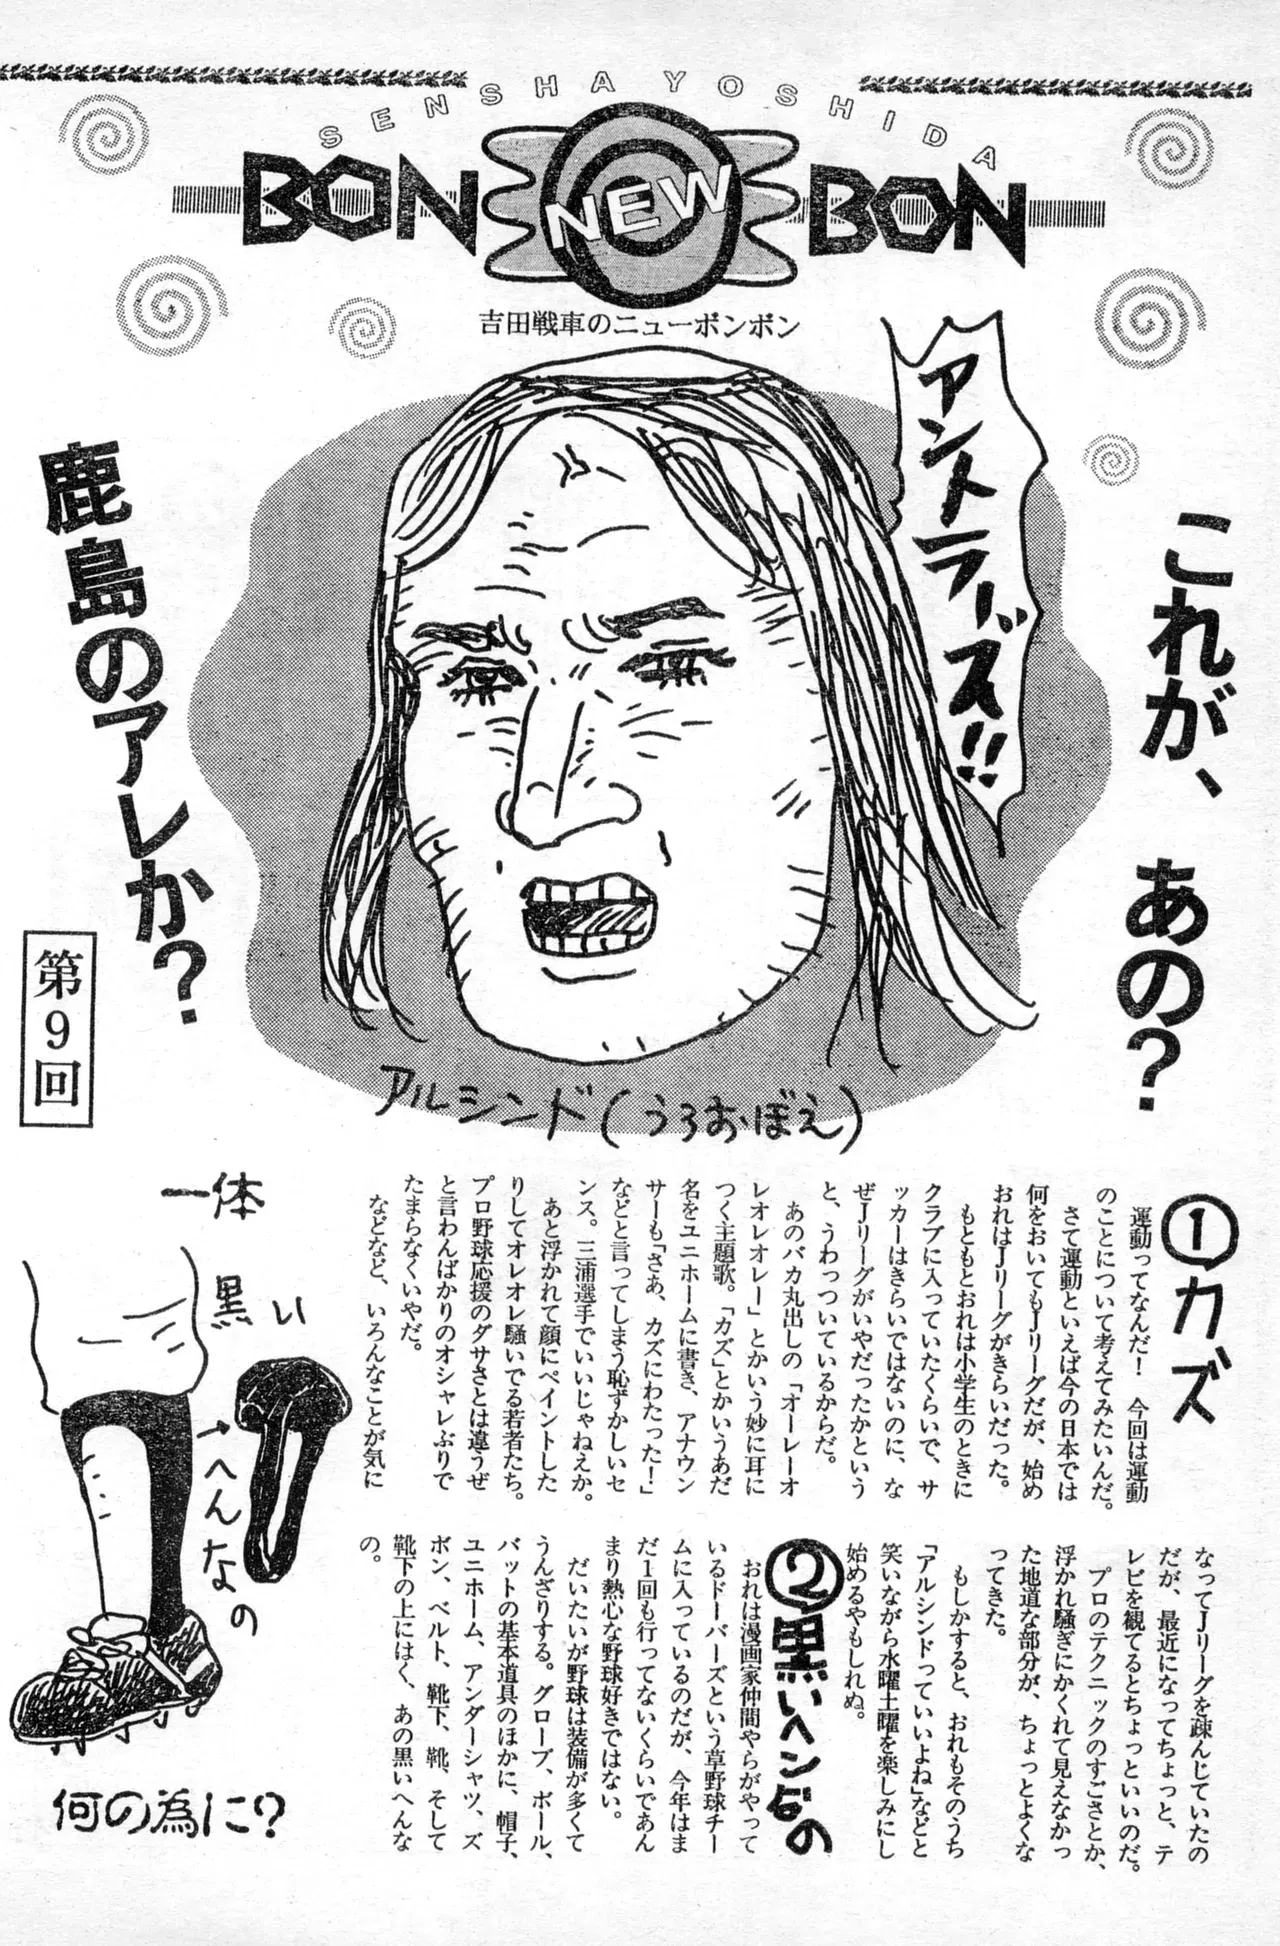 SENSHA YOSHIDA
BON NEW BON
吉田戦車のニューボンボン
これが、あの?
アントラーズ!!
鹿島のアレか?
第9回
アルシンド(うろおぼえ)
①カズ
運動ってなんだ! 今回は運動
のことについて考えてみたいんだ。
さて運動といえば今の日本では
何をおいてもJリーグだが、始め
おれはJリーグがきらいだった。
もともとおれは小学生のときに
クラブに入っていたくらいで、サ
ッカーはきらいではないのに、な
ぜJリーグがいやだったかという
と、うわっついているからだ。
あのバカ丸出しの「オーレーオ
レオレオレー」とかいう妙に耳に
つく主題歌。「カズ」とかいうあだ
名をユニホームに書き、アナウン
サーも「さあ、カズにわたった!」
などと言ってしまう恥ずかしいセ
ンス。三浦選手でいいじゃねえか。
あと浮かれて顔にペイントした
りしてオレオレ騒いでる若者たち。
プロ野球応援のダサさとは違うぜ
と言わんばかりのオシャレぶりで
たまらなくいやだ。
などなど、いろんなことが気に
なってJリーグを疎んじていたの
だが、最近になってちょっと、テ
レビを観てるとちょっといいのだ。
プロのテクニックのすごさとか、
浮かれ騒ぎにかくれて見えなかっ
た地道な部分が、ちょっとよくな
ってきた。
もしかすると、おれもそのうち
「アルシンドっていいよね」などと
笑いながら水曜土曜を楽しみにし
始めるやもしれぬ。
②黒いヘンなの
おれは漫画家仲間やらがやって
いるドーバーズという草野球チー
ムに入っているのだが、今年はま
だ1回も行ってないくらいであん
まり熱心な野球好きではない。
だいたいが野球は装備が多くて
うんざりする。グローブ、ボール、
バットの基本道具のほかに、帽子、
ユニホーム、アンダーシャツ、ズ
ボン、ベルト、靴下、靴、そして
靴下の上にはく、あの黒いへんな
の。
一体
黒い
へんなの
何の為に?